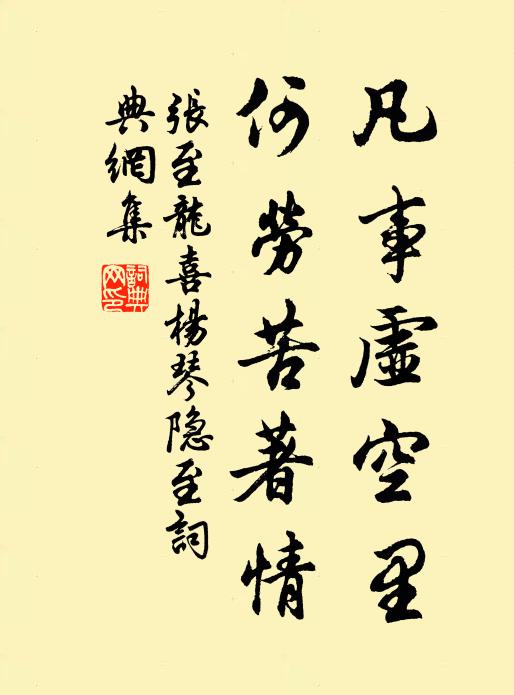 凡事虛空里
何勞苦著情
張至龍喜楊琴隐至詞
典網集
詞典
网印